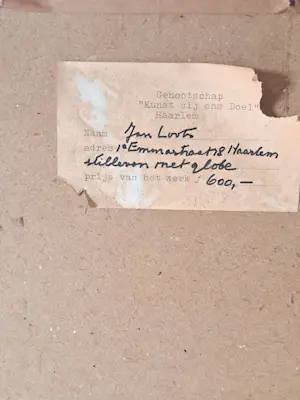 Genootschap
"Kunst zij ons Doel"
Haarlem
Naam Jan Loots
adres 1e Emmastraat 8 Haarlem
stilleven met globe
prijs van het werk f 600,—